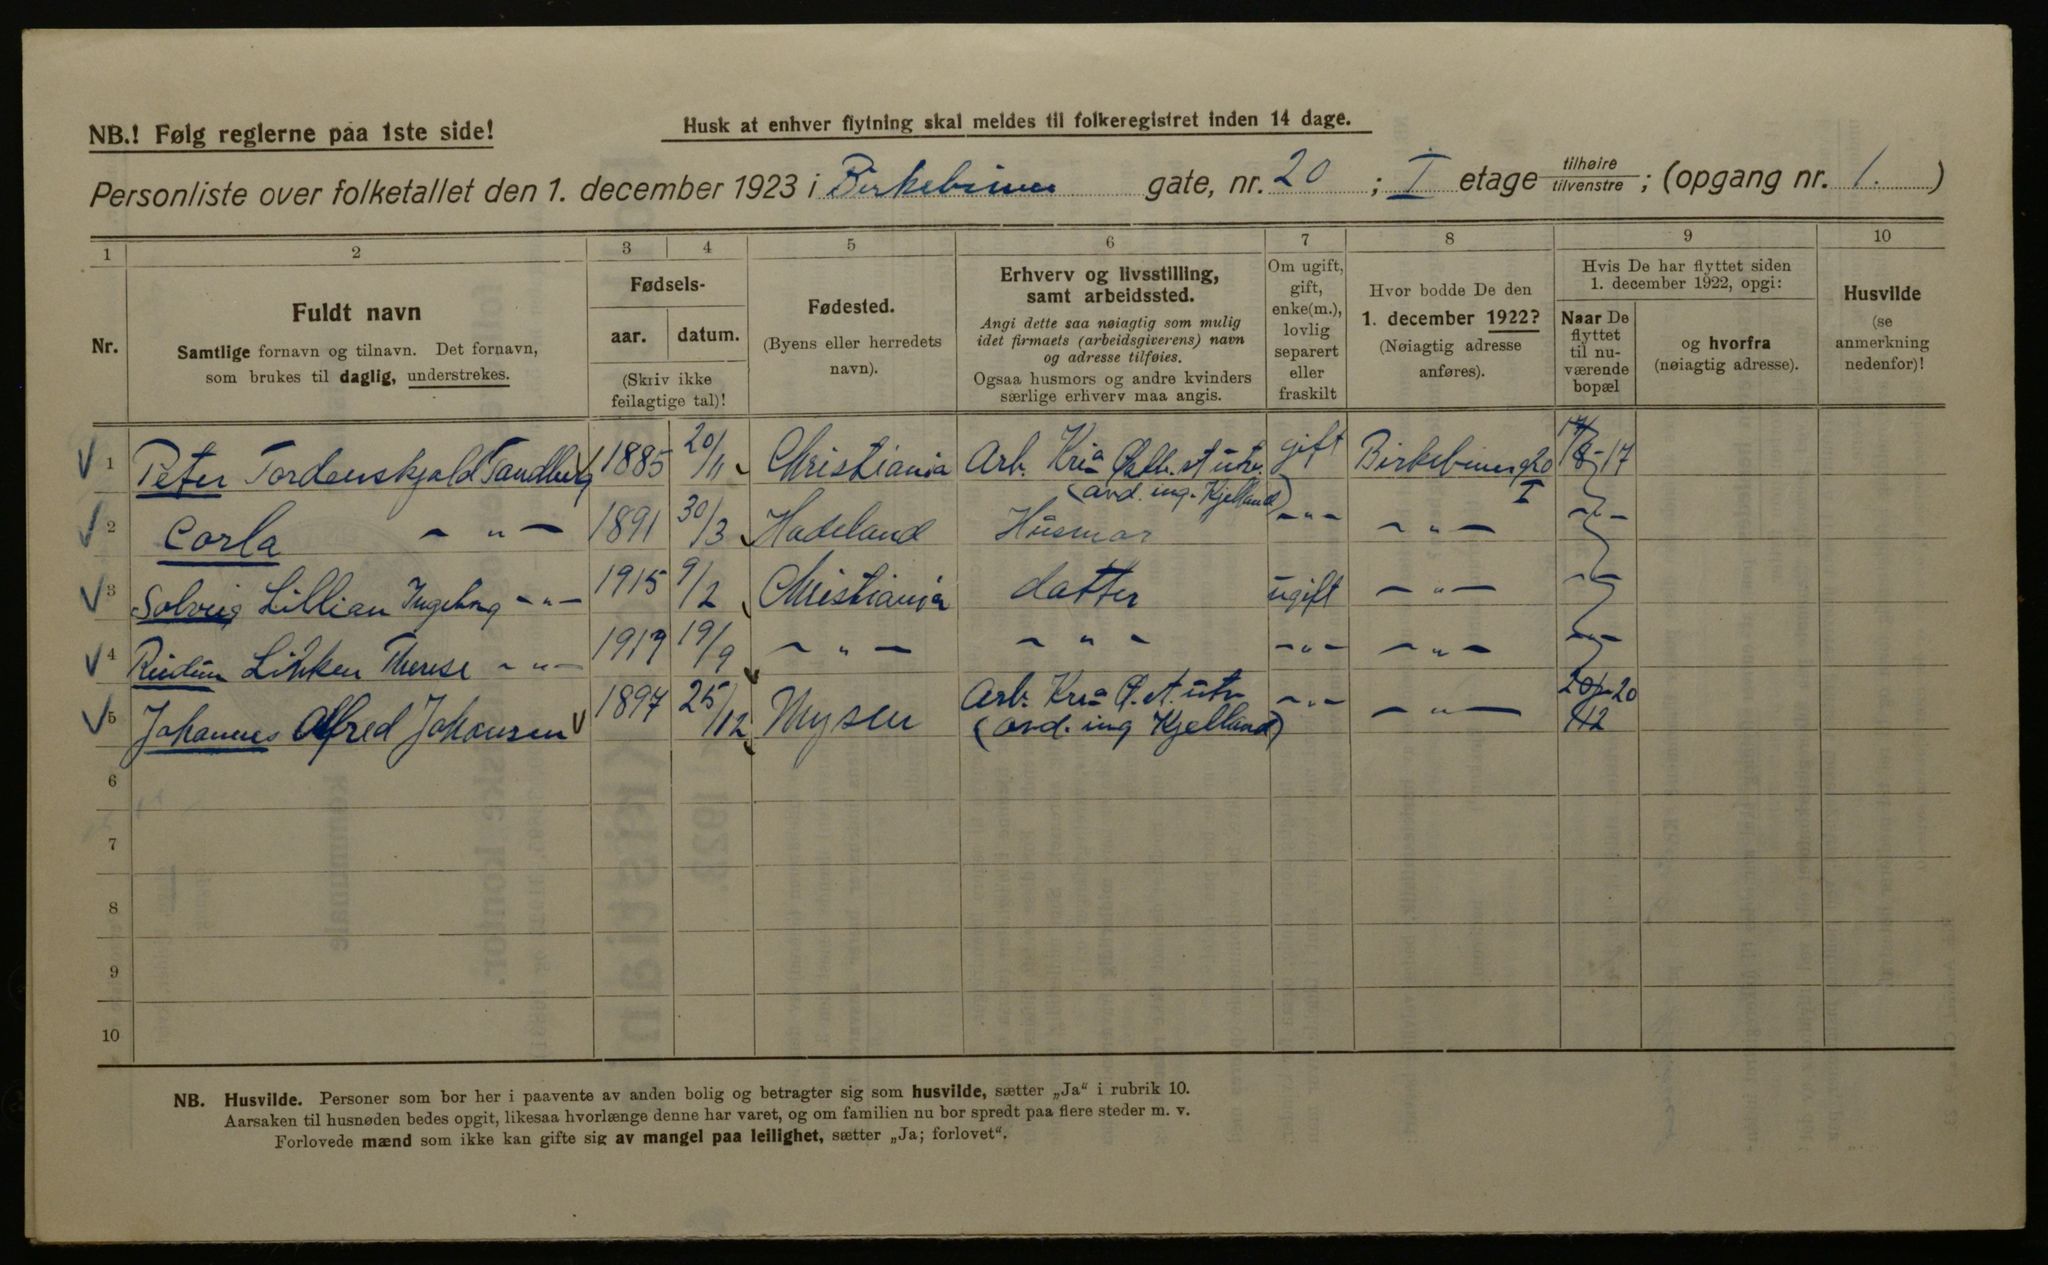 NB.! Følg reglerne paa 1ste side!
Husk at enhver flytning skal meldes til folkeregistret inden 14 dage.
Personliste over folketallet den 1. december 1923 i Birkebiner gate, nr. 20 ; I etage tilhøire tilvenstre ; (opgang nr. 1. )
1 2 3 4 5 6 7 8 9 10
Nr.
Fuldt navn
Samtlige fornavn og tilnavn. Det fornavn,
som brukes til daglig, understrekes.
Fødsels-
aar. datum.
(Skriv ikke
feilagtige tal)!
Fødested.
(Byens eller herredets
navn).
Erhverv og livsstilling,
samt arbeidssted.
Angi dette saa nøiagtig som mulig
idet firmaets (arbeidsgiverens) navn
og adresse tilføies.
Ogsaa husmors og andre kvinders
særlige erhverv maa angis.
Om ugift,
gift,
enke(m.),
lovlig
separert
eller
fraskilt
Hvor bodde De den
1. december 1922?
(Nøiagtig adresse
anføres).
Hvis De har flyttet siden
1. december 1922, opgi:
Naar De
flyttet
til nu-
værende
bopæl
og hvorfra
(nøiagtig adresse).
Husvilde
(se
anmerkning
nedenfor)!
1 Peter Tordenskjold Tandberg 1885 20/11 Christiania Arb. Kria st utv. gift Birkebinerg 20 17
(avd. ing. Kjelland) I
2 Corla - " - 1891 30/3 Hadeland Húsmor - " - - " - - " -
3 Solveig Lillian Ingeborg - " - 1915 9/2 Christiania datter ugift - " - - " -
4 Reidun Therese - " - 1917 19/9 - " - - " - - " - - " - - " -
5 Johannes Alfred Johansen 1897 25/12 Mysen Arb. Kria st utv - " - - " - 20/12 20
(avd. ing Kjelland)
6
7
8
9
10
NB. Husvilde. Personer som bor her i paavente av anden bolig og betragter sig som husvilde, sætter „Ja“ i rubrik 10.
Aarsaken til husnøden bedes opgit, likesaa hvorlænge denne har varet, og om familien nu bor spredt paa flere steder m. v.
Forlovede mænd som ikke kan gifte sig av mangel paa leilighet, sætter „Ja; forlovet“.